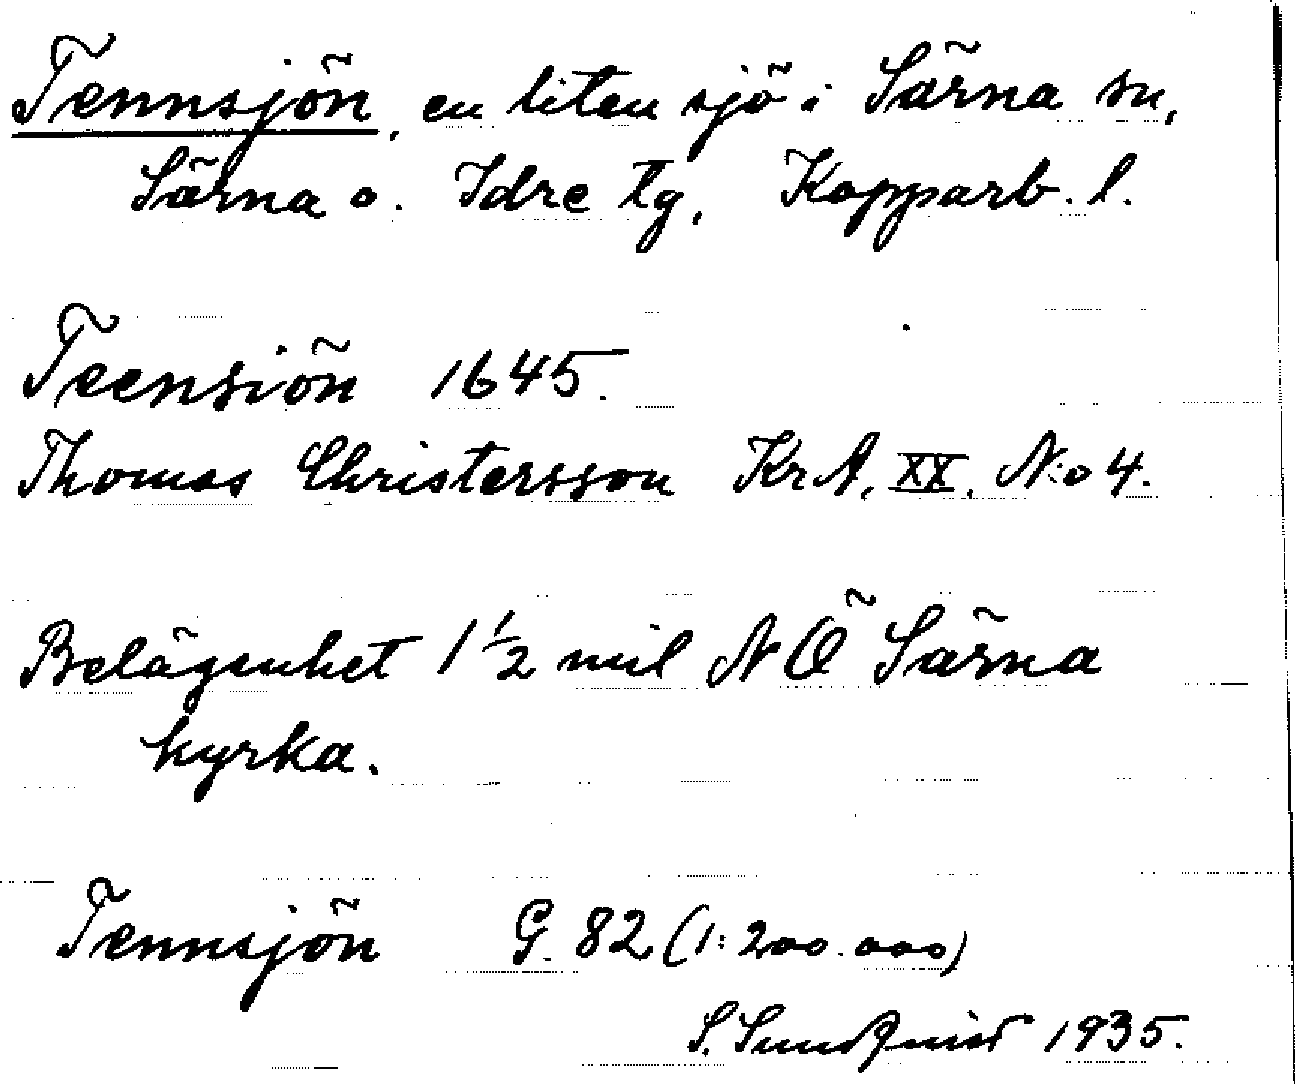 Tennsjön, en liten sjö i Särna sn,
Särna o. Idre tg, Kopparb. l.
Teensiön 1645.
Thomas Christersson Kr A, XX, N:o 4.
Belägenhet 1 1/2 mil NÖ Särna
kyrka.
Tennsjön G. 82 (1:200.000)
S. Sundquist 1935.